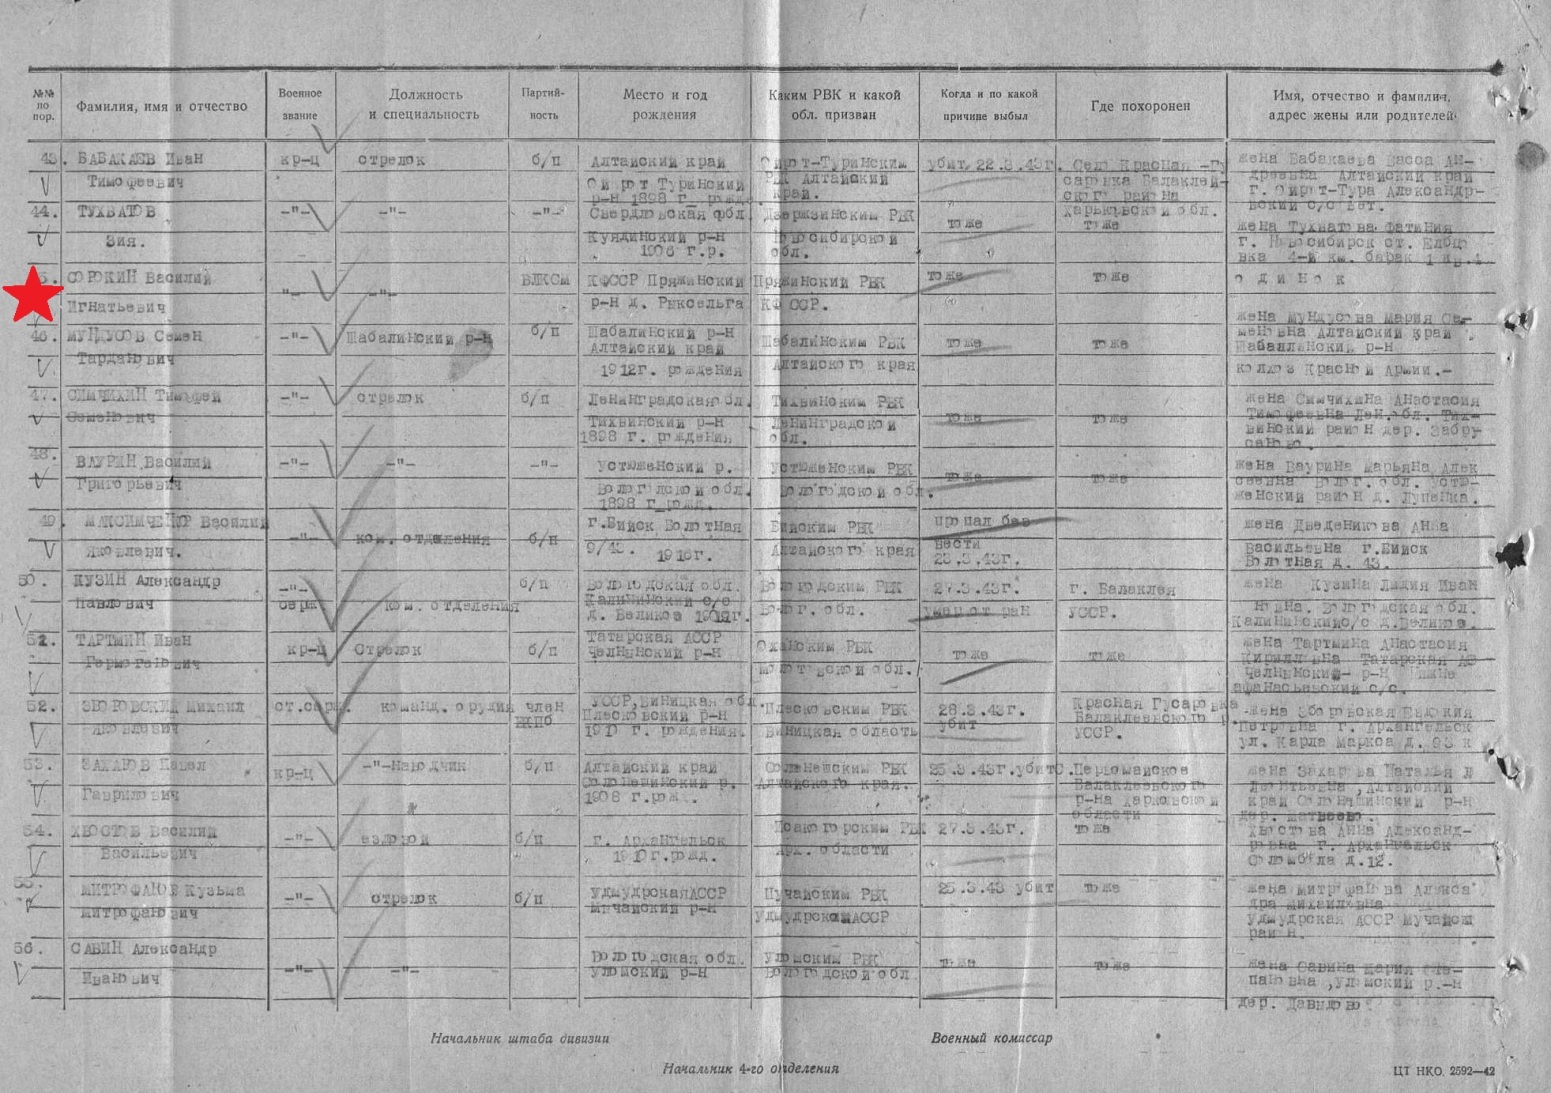 №№ по пор.
Фамилия, имя и отчество
Военное звание
Должность и специальность
Партий-ность
Место и год рождения
Каким РВК и какой обл. призван
Когда и по какой причине выбыл
Где похоронен
Имя, отчество и фамилия, адрес жены или родителей
43. БАБАКАЕВ Иван
Тимофеевич
кр-ц
стрелок
б/п
Алтайский край
Ойрот Туринский
р-н 1898 г. рожд.
Ойрот-Туринским
РВК Алтайский
край.
убит 22.3.43г.
Село Красная -Гу
саровка Балаклей-
ского района
Харьковской обл.
жена Бабакаева Васса Ан-
дреевна Алтайский край
г. Ойрот-Тура Александр-
вский с/совет.
44. ТУХВАТОВ
Зия.
-"-
-"-
-"-
Свердловская обл.
Куядинский р-н
1906 г.р.
Дзержинским РВК
Новосибирской
обл.
тоже
тоже
жена Тухватова Фатиния
г. Новосибирск ст.
вка 4-й км. барак 1 кв.4
5. СОРОКИН Василий
Игнатьевич
-"-
-"-
ВЛКСМ
КФССР Пряжинский
р-н д. Рыксельга
Пряжинский РВК
КФ ССР.
тоже
тоже
о д и н о к
46. МУНДУСОВ Семен
Тарданович
-"-
Шабалинский р-н
б/п
Шабалинский р-н
Алтайский край
1912г. рождения
Шабалинским РВК
Алтайского края
тоже
тоже
жена Мундусова Мария Се-
меновна Алтайский край
Шабаллинский р-н
колхоз Красной Армии.-
47. СИМЧИХИН Тимофей
Семенович
-"-
стрелок
б/п
Ленинградская обл.
Тихвинский р-н
1898 г. рождения
Тихвинским РВК
Ленинградской
обл.
тоже
тоже
жена Симчихина Анастасия
Тимофеевна Лен.обл. Тих-
винский район дер. Забру-
48. ВАУРИН Василий
Григорьевич
-"-
-"-
-"-
Устюженский р.
Вологодской обл.
1898 г. рожд.
Устюженским РВК
Вологодской обл.
тоже
тоже
жена Ваурина Марьяна Алек
сеевна Волог. обл. Устю-
женский район д. Лупенка.
49. МАКСИМЧЕНКОР Василий
Яковлевич.
-"-
ком. отделения
б/п
г.Бийск Болотная
9/43. 1916г.
Бийским РВК
Алтайского края
пропал без
вести
23.3.43г.
жена Дведеникова Анна
Васильевна г.Бийск
Болотная д. 43.
50. КУЗИН Александр
Павлович
-"-
серж
ком. отделения
б/п
Вологодская обл.
Калининский с/с
Вологодским РВК
Волог. обл.
27.3.43г.
умер от ран
г. Балаклея
УССР.
жена Кузина Лидия Иван
овна. Вологодская обл.
Калининский с/с д.Великое.
51. ТАРТМИН Иван
Гермогенович
кр-ц
Стрелок
б/п
Татарская АССР
Челнынский р-н
Оханским РВК
Молотовской обл.
тоже
тоже
жена Тартмина Анастасия
Кирилловна Татарская АС
Челнынский р-н
афанасьевский с/с.
52. ЗБОРОВСКИЙ Михаил
Яковлович
ст.серж.
команд. орудия
член
ВКПб
УССР, Виницкая обл.
Плесковский р-н
1910 г. рождения.
Плесковским РВК
Виницкая область
28.3.43г.
убит
Красная Гусаровка
Балаклеевского р.
УССР.
жена Зборовская Евдокия
Петровна г. Архангельск
ул. Карла Маркса д. 93 к
53. ЗАХАРОВ Павел
Гаврилович
кр-ц
-"-Наводчик
б/п
Алтайский край
Солонешинский р.
1908 г.рож..
Солонешским РВК
Алтайского края.
25.3.43г.убит
с.Первомайское
Балаклеевского
р-на Харковской
области
жена Захарова Наталья Д
Леонтьевна ,Алтайский
край Солонешинский р-н
дер. Матвеево.
54. ХВОСТОВ Василий
Васильевич
-"-
ездовой
б/п
г. Архангельск
1910г.рожд.
Исакогорским РВК
Арх. области
27.3.43г.
тоже
Хвостова Анна Александ-
ровна г. Архангельск
Соломбала д.12.
55. МИТРОФАНОВ Кузьма
Митрофанович
-"-
стрелок
б/п
УдмудрскаяАССР
Мучайский р-н
Пучайским РВК
УдмудрскойАССР
25.3.43 убит
тоже
жена Митрофанова Алекса
дра Михайловна
Удмудрская АССР Мучайск
район.
56. САВИН Александр
Иванович
-"-
-"-
Вологодская обл.
Уломский р-н
Уломским РВК
Вологодской обл
тоже
тоже
жена Савина Мария Сте-
пановна ,Уломский р.-н
дер. Давыдово
Начальник штаба дивизии
Военный комиссар
Начальник 4-го отделения
ЦТ НКО. 2592—42